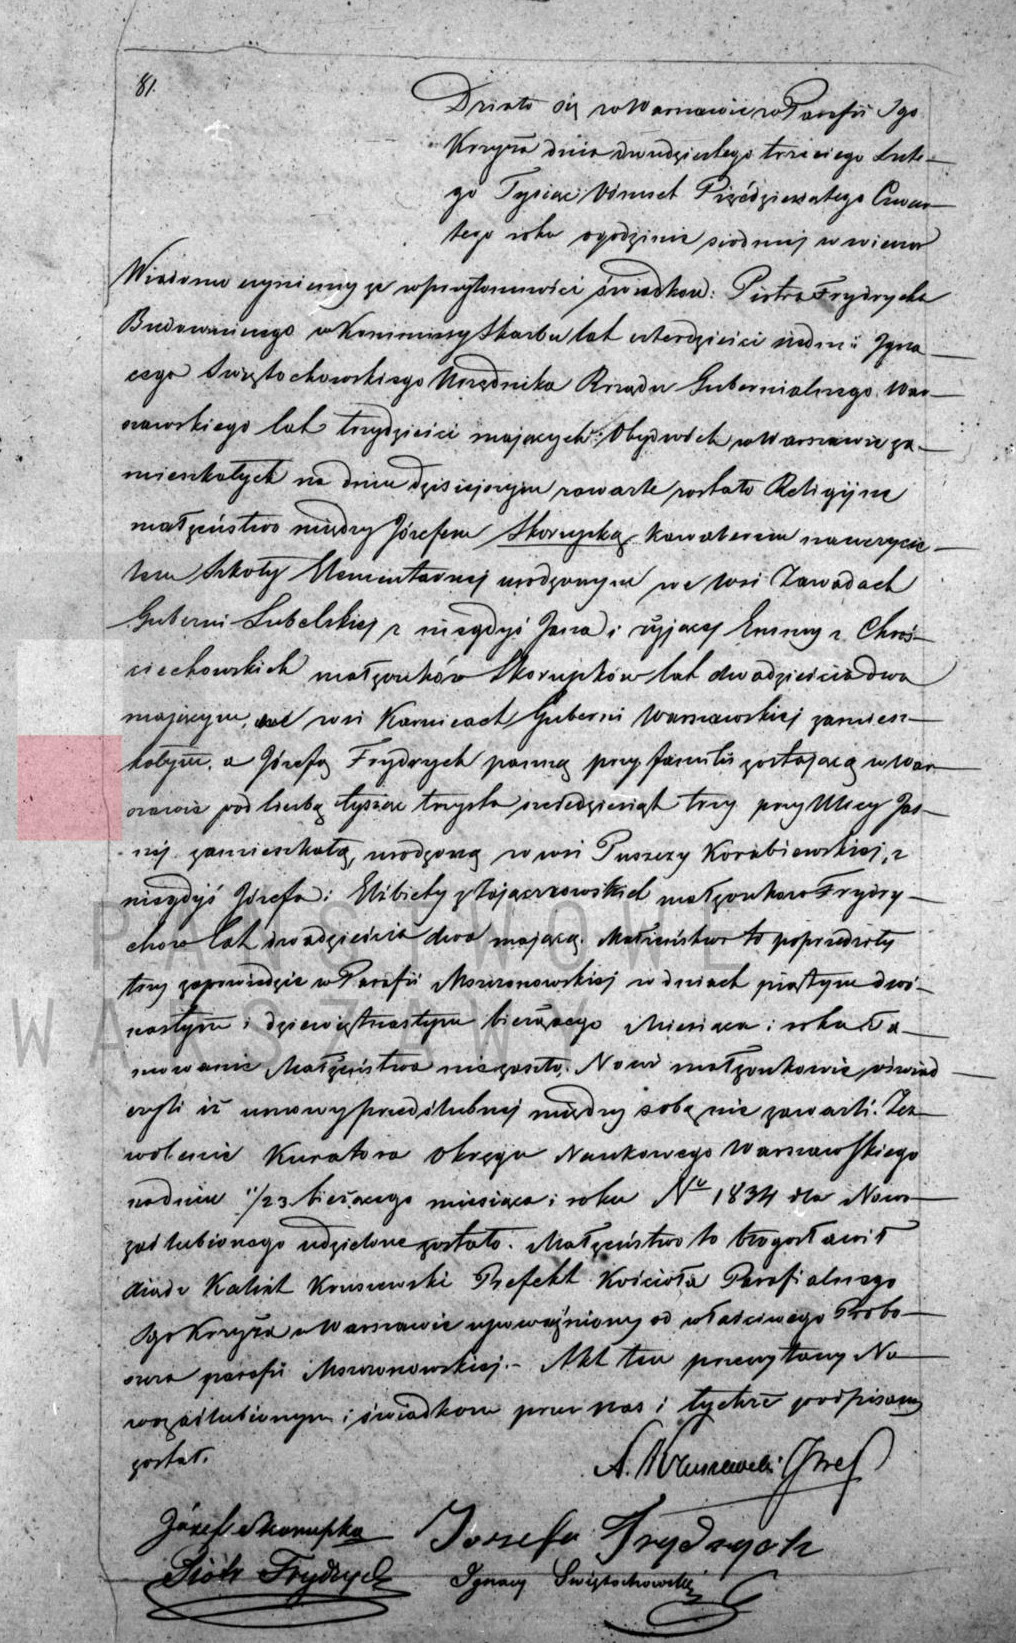 81.
Działo się w Warszawie w Parafii Sgo
Krzyża dnia dwudziestego trzeciego Lute-
go Tysiąc Ośmset Pięćdziesiątego Czwar-
tego roku o godzinie siódmej w wieczor
Wiadomo czyniemy że w przytomności świadków: Piotra Frydrycha
Budowniczego w Kommissyi Skarbu lat czterdzieści siedm i Igna-
cego Świętochowskiego Urzędnika Rządu Gubernialnego War-
szawskiego lat trzydzieści mających; Obydwóch w Warszawie za-
mieszkałych na dniu dzisiejszym zawarte zostało Religijne
małżeństwo między Józefem Skorupką Kawalerem nauczycie-
lem Szkoły Elementarnej urodzonym we wsi Zawadach
Gubernii Lubelskiej z niegdyś Jana i żyjącej Emmy z Chroś-
ciechowskich małżonków Skorupków lat dwadzieścia dwa
mającym, we wsi Karnicach Gubernii Warszawskiej zamiesz-
kałym, a Józefą Frydrych panną przy familii zostającą w War-
szawie pod liczbą tysiąc trzysta sześćdziesiąt trzy przy Ulicy Jas-
nej zamieszkałą, urodzoną w wsi Puszczy Korabiewskiej, z
niegdyś Józefa i Elżbiety z małżonków Frydry-
chów lat dwadzieścia dwa mającą. Małżeństwo to poprzedziły
trzy zapowiedzie w Parafii Mszczonowskiej w dniach piątym dwó-
nastym i dziewiętnastym bieżącego Miesiąca i roku Ta-
mowanie Małżeństwa nie zaszło. Nowi małżonkowie oświad
czyli iż umowy przedślubnej między sobą nie zawarli. Zez-
wolenie Kuratora Okręgu Naukowego Warszawskiego
w dniu 11/23 bieżącego miesiąca i roku No 1834 dla Nowo-
zaślubionego udzielone zostało. Małżeństwo to błogosławił
Xiądz Kalixt Kruszewski Prefekt Kościoła Parafialnego
Sgo Krzyża w Warszawie upoważniony od właściwego Probo-
szcza parafii Mszczonowskiej.- Akt ten przeczytany No-
wozaślubionym i świadkom przez nas i tychże podpisany
został.
Kruszewski
Józef Skorupka Jozefa Frydrych
Piotr Frydrych Ignacy Świętochowski
PAŃSTWOWE
WARSZAWY